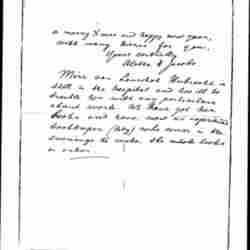 a merry Xmas and happy new year,
with many kisses for you.
Yours cordially
Aletta H Jacobs
Miss van Lanschot Hubrecht is
still in the hospital and too ill to
trouble her with any particulars
about work. We have got her
books and have now an experienced
bookkeeper (boy) who comes in the
evenings to make the whole books
in order.